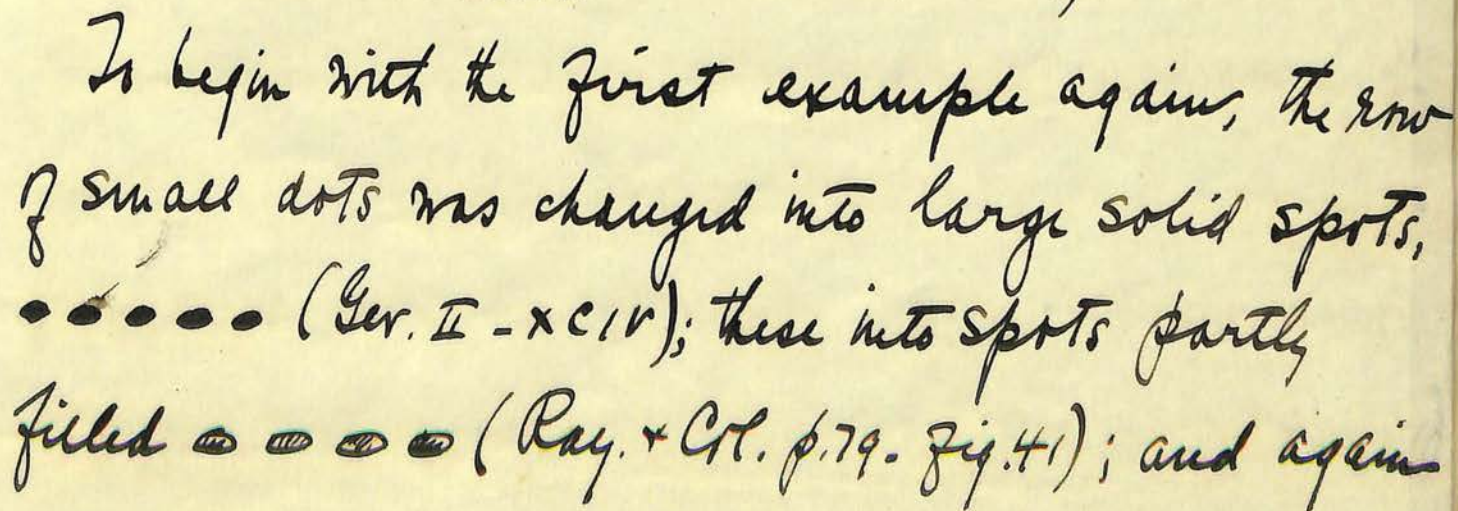 To begin with the first example again, the row
of small dots was changed into large solid spots,
●●●●● (Ger. II - XCIV); these into spots partly
filled (Ray. + Col. p.79. fig.41); and again